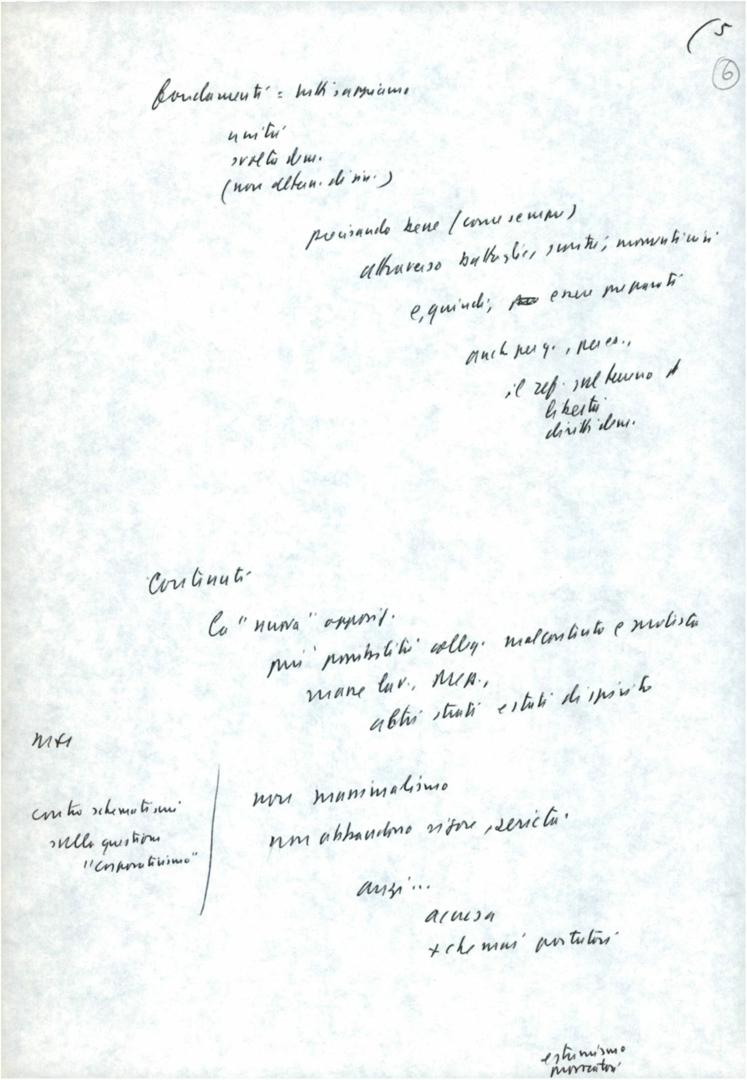 (5
6
fondamenti = tutti sappiamo
unità
svolta dem.
(non altern. di sin.)
precisando bene (come sempre)
attraverso battaglie, scontri, momenti
e, quindi, essere preparati
anche per q., per es.,
il sul terreno
libertà
diritti dem.
Contenuti
La "nuova" opposiz.
più possibilità colleg. malcontento e protesta
masse lav., Mezz.,
altri strati e stati di spirito
contro schematismi
sulla questione
"corporativismo"
non massimalismo
non abbandono rigore, serietà
anzi...
accusa
+ che mai portatori
estremismo